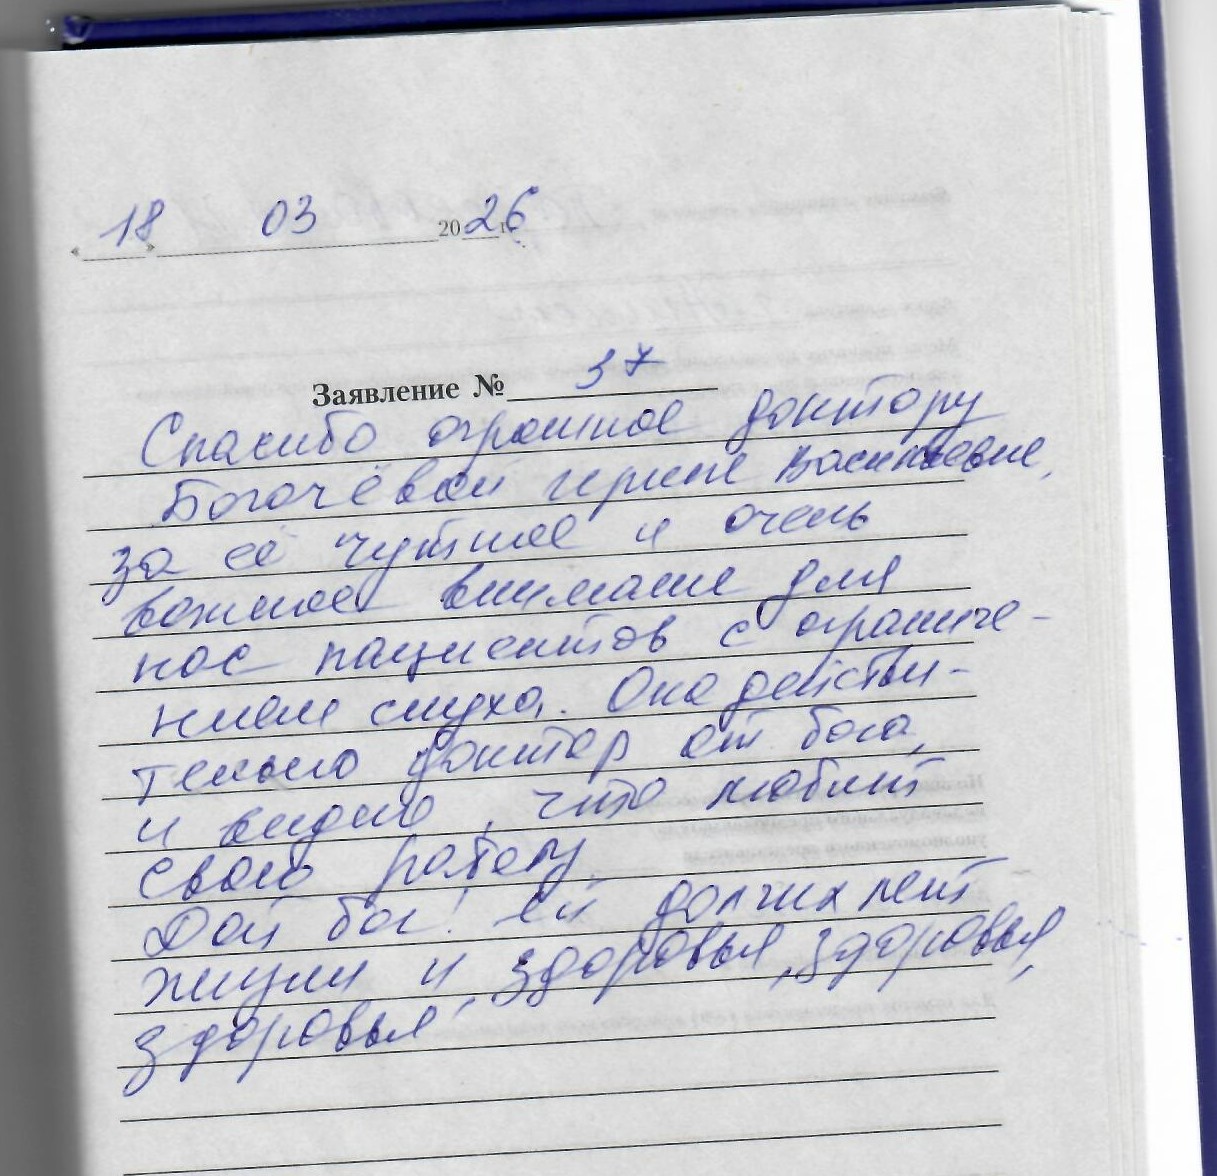 « 18 » 03 2026 г.
Заявление № 37
Спасибо огромное доктору
Богачёвой Ирине Васильевне,
за её чуткое и очень
важное внимание для
нас пациентов с ограниче-
нием слуха. Она действи-
тельно доктор от бога,
и видно, что любит
свою работу.
Дай бог! ей долгих лет
жизни и здоровья, здоровья,
здоровья